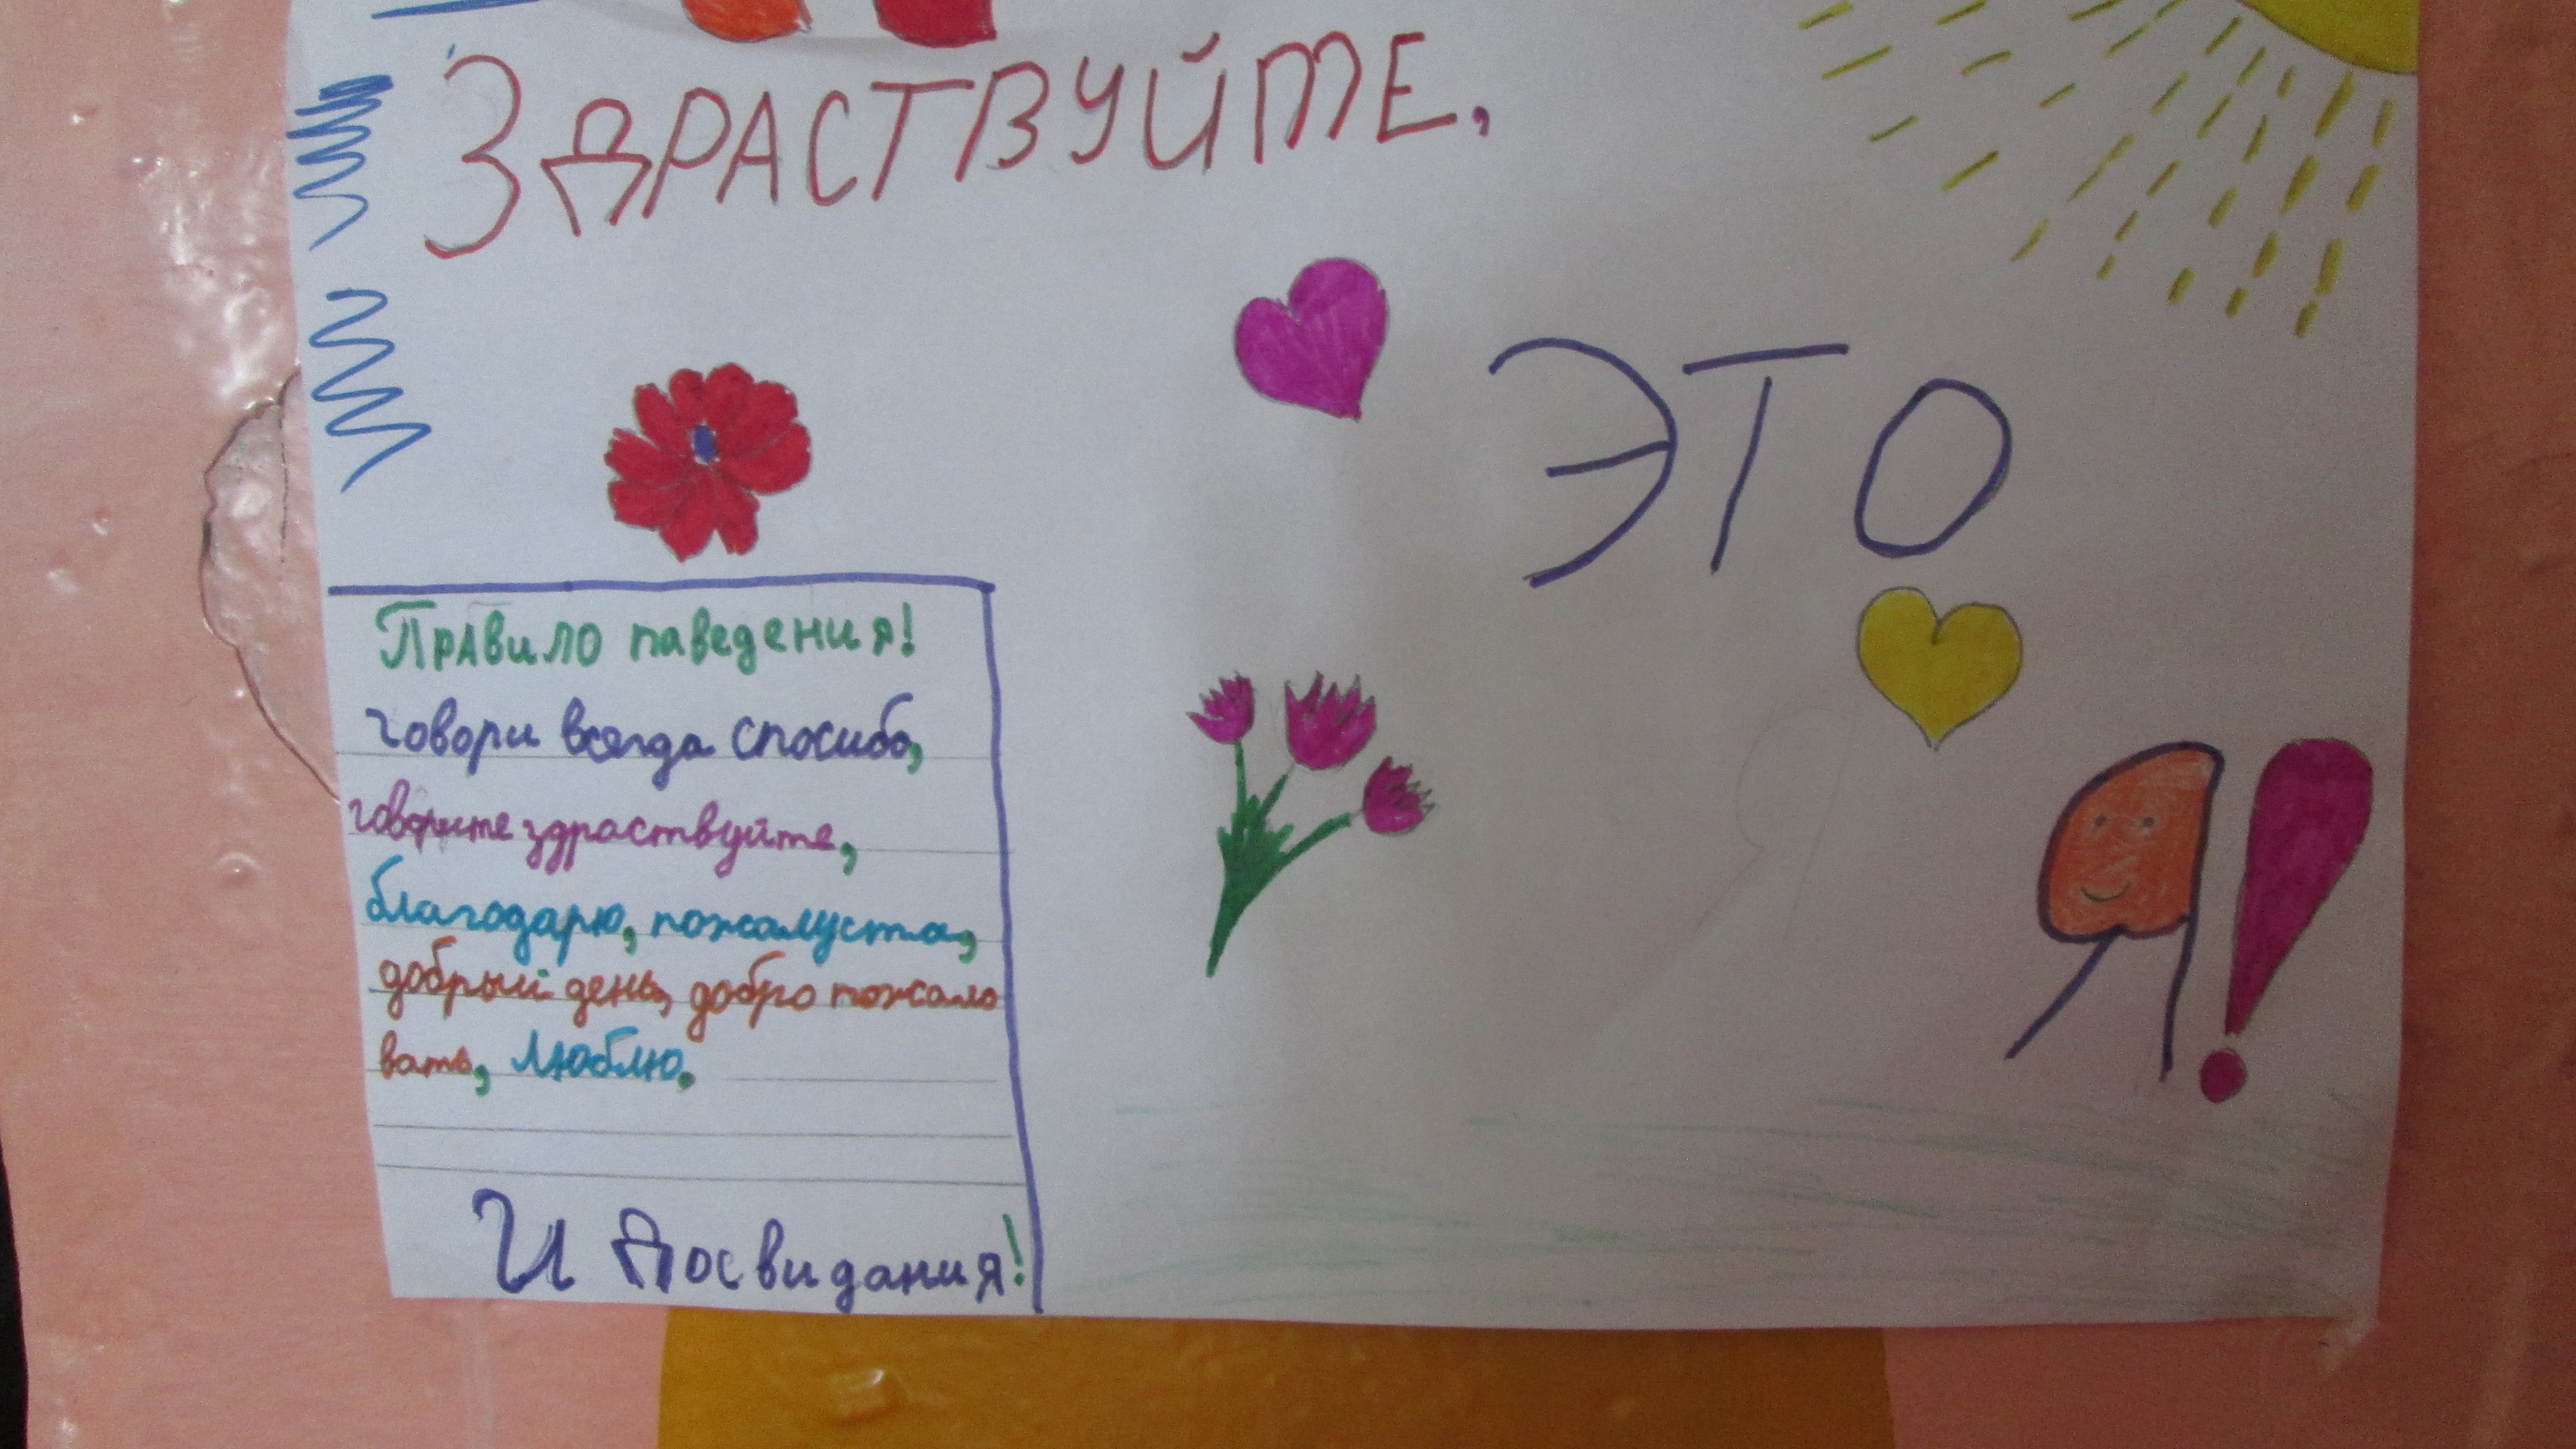 ЗДРАСТВУЙТЕ,
ЭТО
Я!
Правило паведения!
говори всегда спосибо,
говорите здраствуйте,
благодарю, пожалуста,
добрый день, добро пожало
вать, люблю.
И Досвидания!